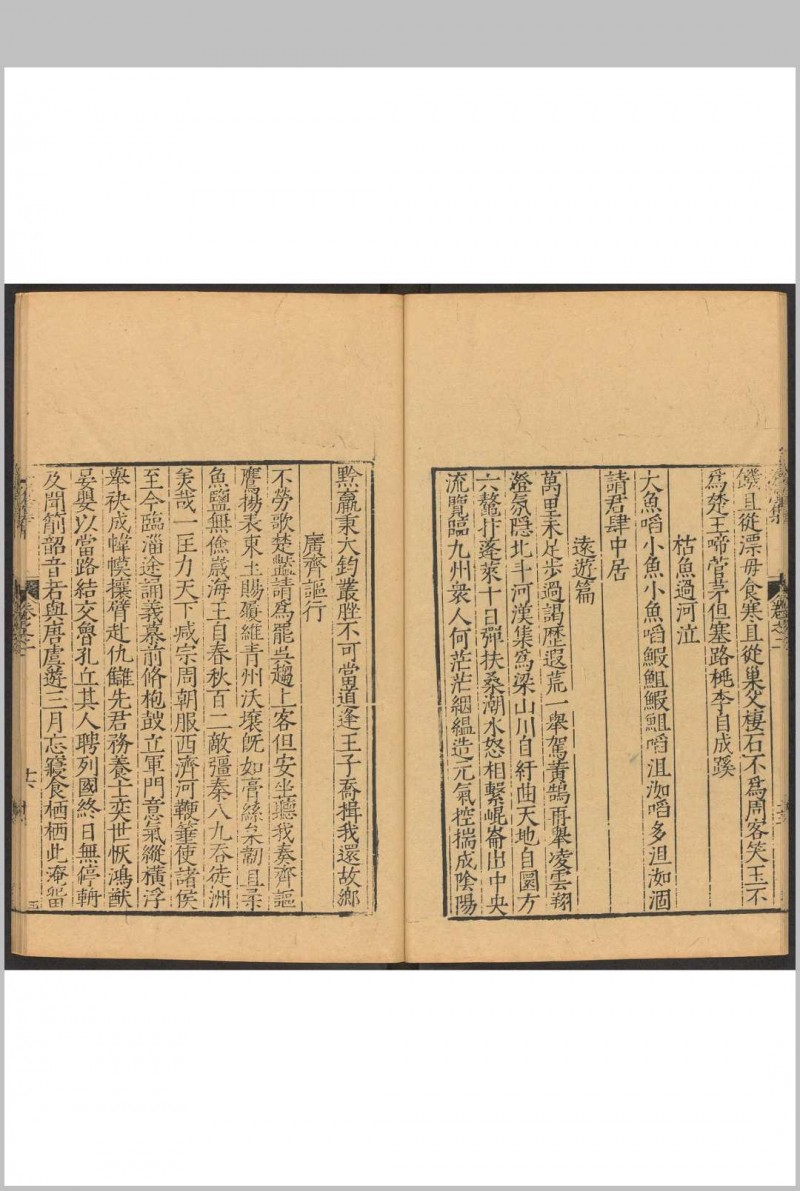 饑且從漂母食寒且從巢父棲石不爲周客笑玉不
爲楚王啼菅茅但塞路桃李自成蹊
枯魚過河泣
大魚啗小魚小魚啗鰕䱉鰕䱉啗沮洳啗多沮洳涸
請君肆中居
遠遊篇
萬里未足步過謁歷遐荒一舉駕黃鵠再舉凌雲翔
澄氛隱北斗河漢集爲梁山川自紆曲天地自圓方
六鰲抃蓬萊十日彈扶桑潮水怒相擊崐崙出中央
流覽臨九州衆人何茫茫絪縕造元氣控揣成陰陽
卷之二
黔嬴秉大鈞叢脞不可當道逢王子喬揖我還故鄉
廣齊謳行
不勞歌楚豔請爲罷吳趨上客但安坐聽我奏齊謳
鷹揚表東土賜履維青州沃壤旣如膏絲枲
魚鹽無儉歲海王自春秋百二敵彊秦八九吞徒洲
美哉一匡力天下臧宗周朝服西濟河鞭箠使諸侯
至今臨淄途誦義慕前脩枹鼓立軍門意氣縱橫浮
舉袂成幃幙攘臂赴仇讎先君務養士奕世恢鴻猷
晏嬰以當路結交魯孔丘其人聘列國終日無停輈
及聞箾韶音若與唐虞遊三月忘寢食栖栖此淹畱
卷之二